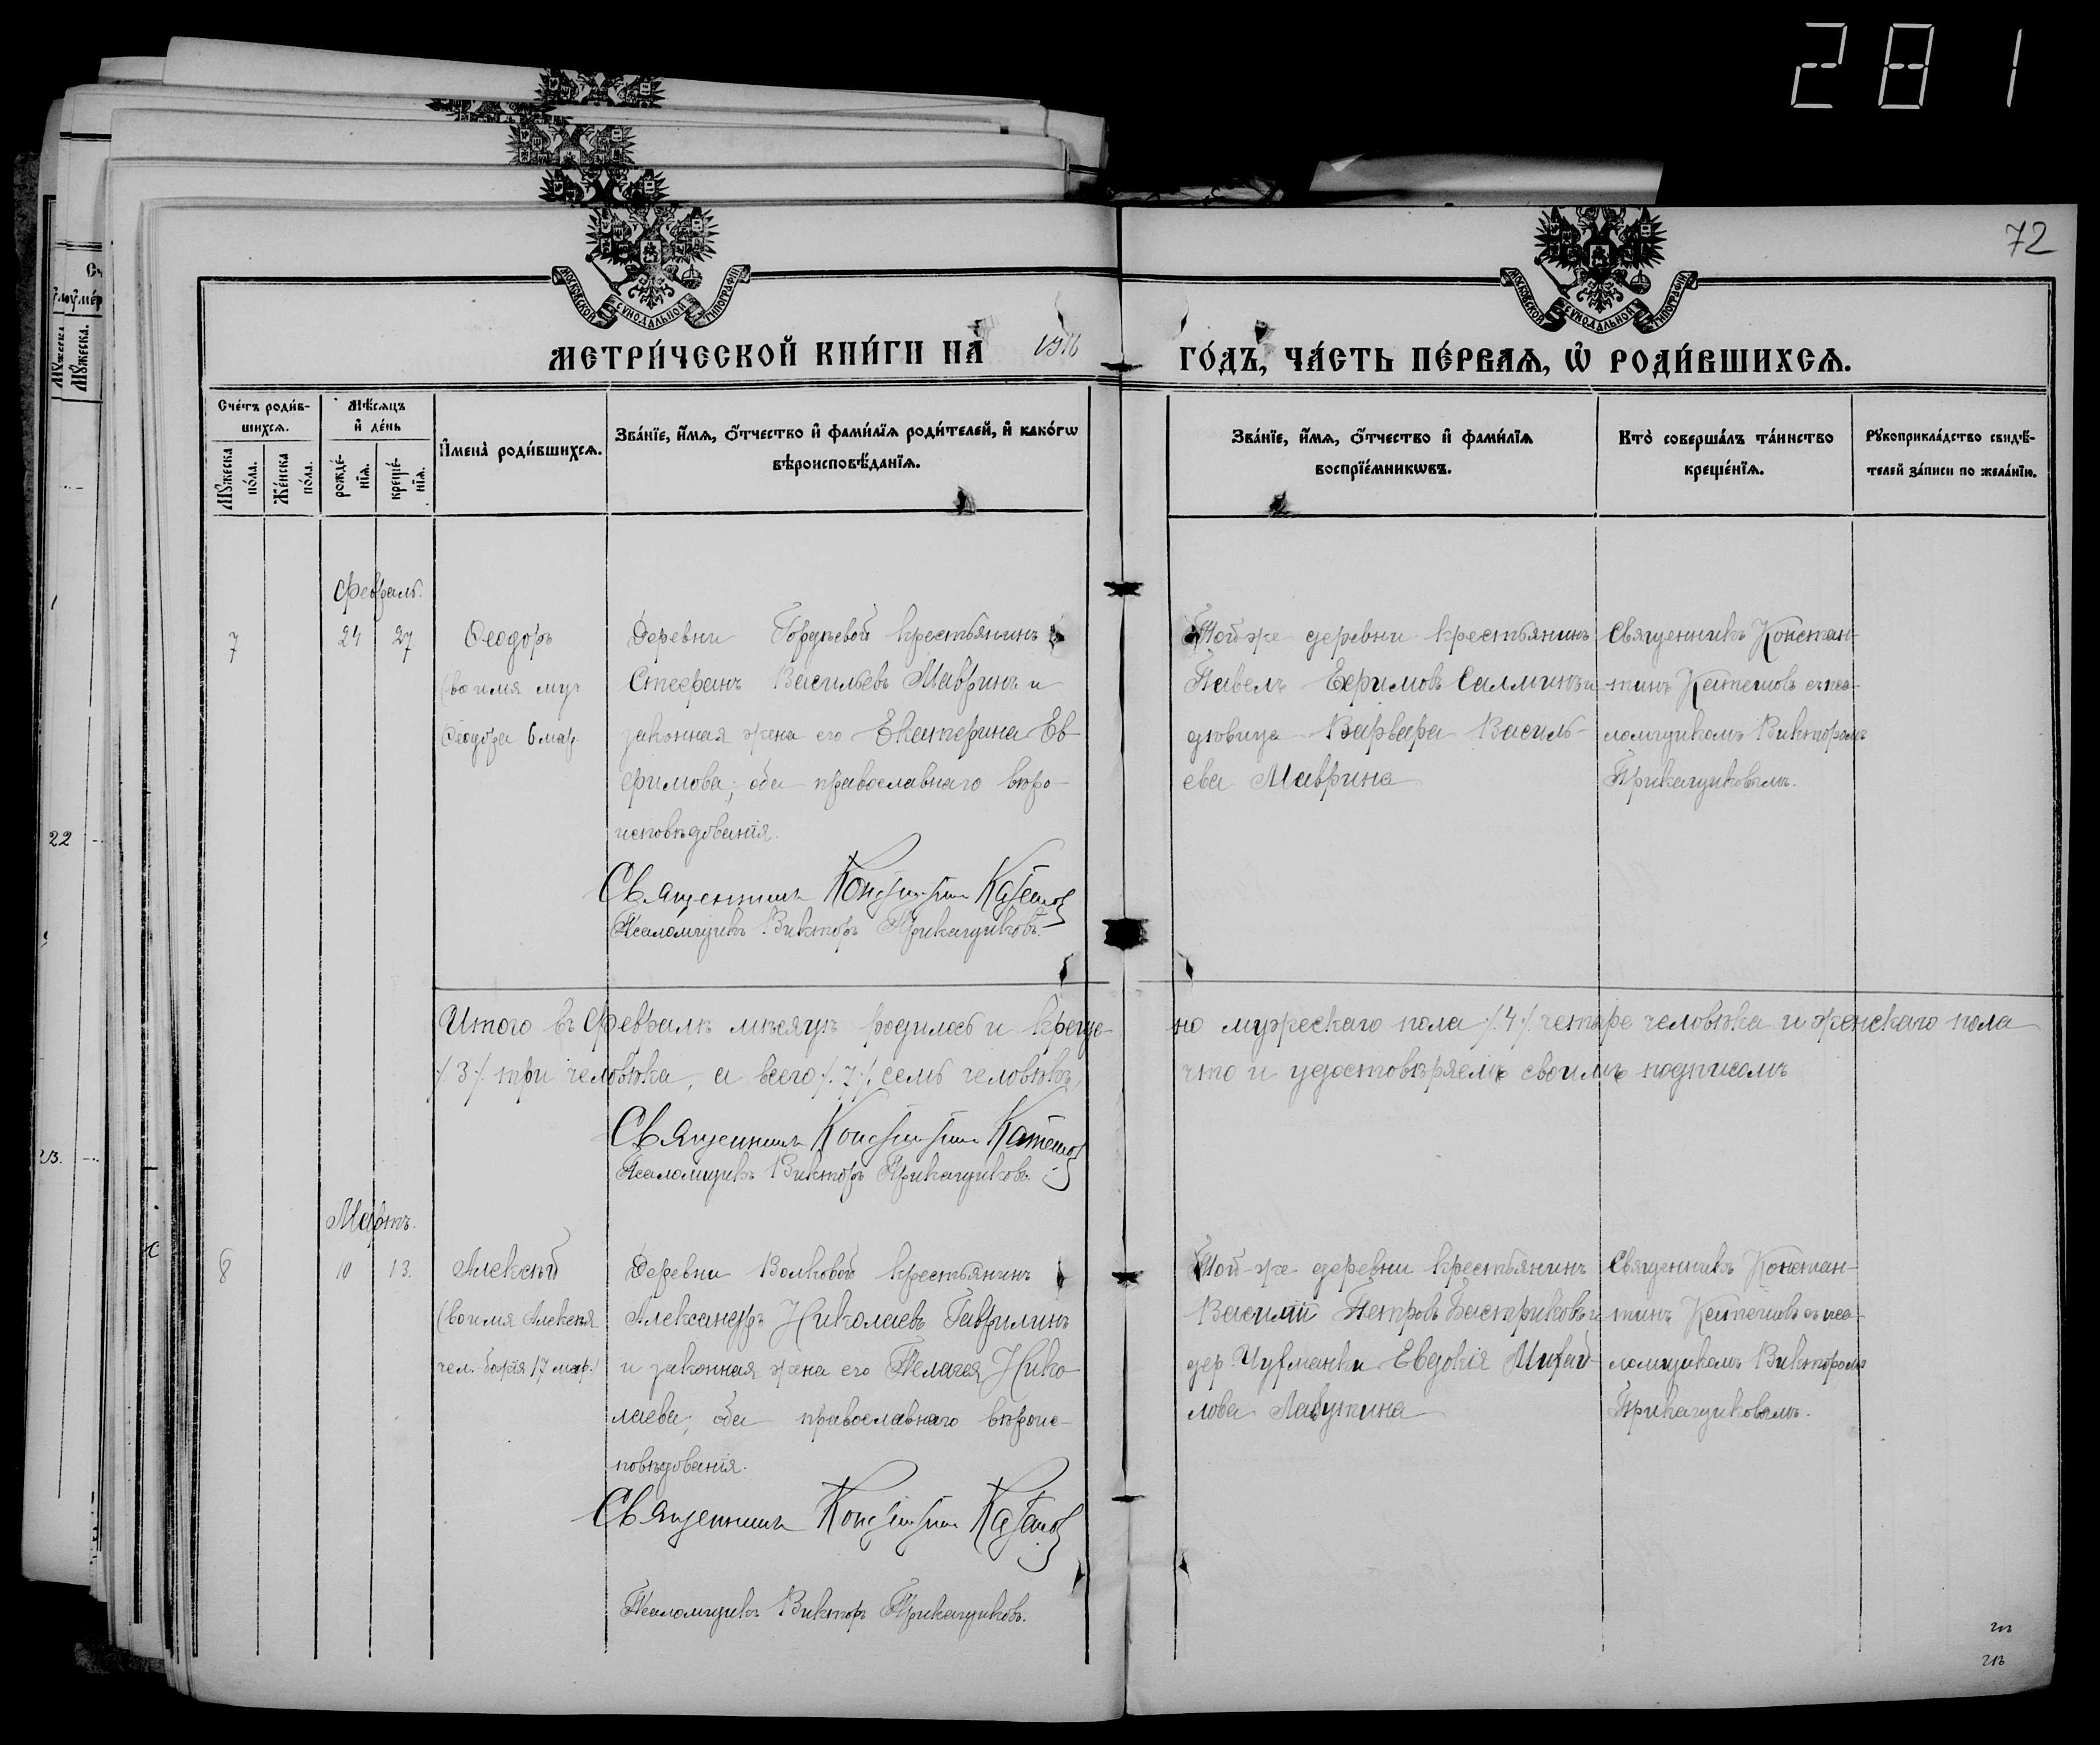 281
72
МОСКОВСКОЙ СѴНОДАЛЬНОЙ ТИПОГРАФІИ
МОСКОВСКОЙ СѴНОДАЛЬНОЙ ТИПОГРАФІИ
МЕТРИ́ЧЕСКОЙ КНИ́ГИ НА̀ 1916 ГО́ДЪ, ЧА́СТЬ ПЕ́РВАѦ, Ѡ҆ РОДИ́ВШИХСѦ.
Сче́тъ роди́в-
шихсѧ.
Мꙋ́жеска по́ла.
Же́нска по́ла.
Мѣ́сѧцъ
и҆ де́нь
рожде́-
нїѧ.
креще́-
нїѧ.
И҆мена̀ роди́вшихсѧ.
Зва́нїе, и҆́мѧ, ѻ҆́тчество и҆ фами́лїѧ роди́телей, и҆ како́гѡ
вѣроисповѣ́данїѧ.
Зва́нїе, и҆́мѧ, ѻ҆́тчество и҆ фами́лїѧ
воспрїе́мникѡвъ.
Кто̀ соверша́лъ та́инство
креще́нїѧ.
Рꙋкоприкла́дство свидѣ́-
телей за́писи по жела́нїю.
Февраль.
7
24
27
Ѳеодоръ
(во имя муч
Ѳеодора 6 мар
Деревни Гордѣевой крестьянинъ
Стефанъ Васильевъ Мавринъ и
законная жена его Екатерина Ев
фимова; оба православнаго вѣро-
исповѣдованія.
Священникъ Константинъ Катешов
Псаломщикъ Викторъ Прикащиковъ.
Той-же деревни крестьянинъ
Павелъ Ефимовъ Салминъ и
дѣвица Варвара Василь-
ева Маврина
Священникъ Констан-
тинъ Катешовъ с пса-
ломщикомъ Викторомъ
Прикащиковымъ.
Итого въ Февралѣ мѣсяцѣ родилось и креще-
но мужескаго пола /.4./ четыре человѣка и женскаго пола
/.3./ три человѣка, а всего /.7./ семь человѣкъ,
что и удостовѣряемъ своимъ подписомъ
Священникъ Константинъ Катешов
Псаломщикъ Викторъ Прикащиковъ
Мартъ.
8
10
13.
Алексѣй
(во имя Алексѣя
чел. божія 17 мар.)
Деревни Волковой крестьянинъ
Александръ Николаевъ Гаврилинъ
и законная жена его Пелагея Нико-
лаева, оба православнаго вѣроис-
повѣдованія.
Священникъ Константинъ Катешов
Псаломщикъ Викторъ Прикащиковъ.
Той-же деревни крестьянинъ
Василій Петровъ Бастриковъ и
дер. Чурманки Евдокія Михай-
лова Лагутина
Священникъ Констан-
тинъ Катешовъ съ пса-
ломщикомъ Викторомъ
Прикащиковымъ.
22
23.